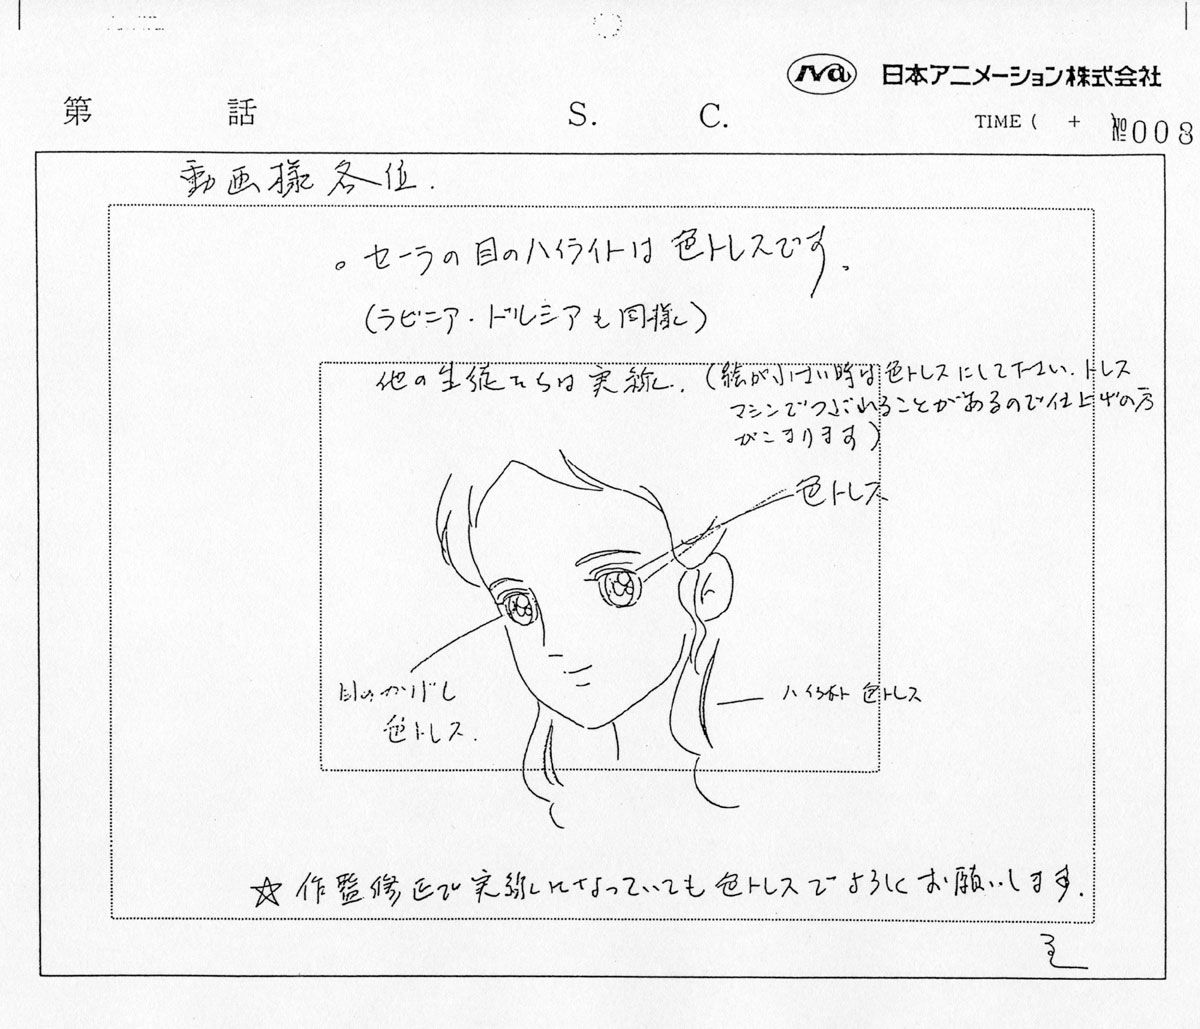 日本アニメーション株式会社
第 話 S. C. TIME ( + №008
動画様各位.
。セーラの目のハイライトは色トレスです。
(ラビニア・ドルシアも同様)
他の生徒たちは実線.(絵が小さい時は色トレスにして下さい.トレス
マシンでつぶれることがあるので仕上げの方
がこまります)
色トレス
目のカゲ
色トレス.
ハイライト 色トレス
☆作監修正で実線になっていても色トレスでよろしくお願いします.